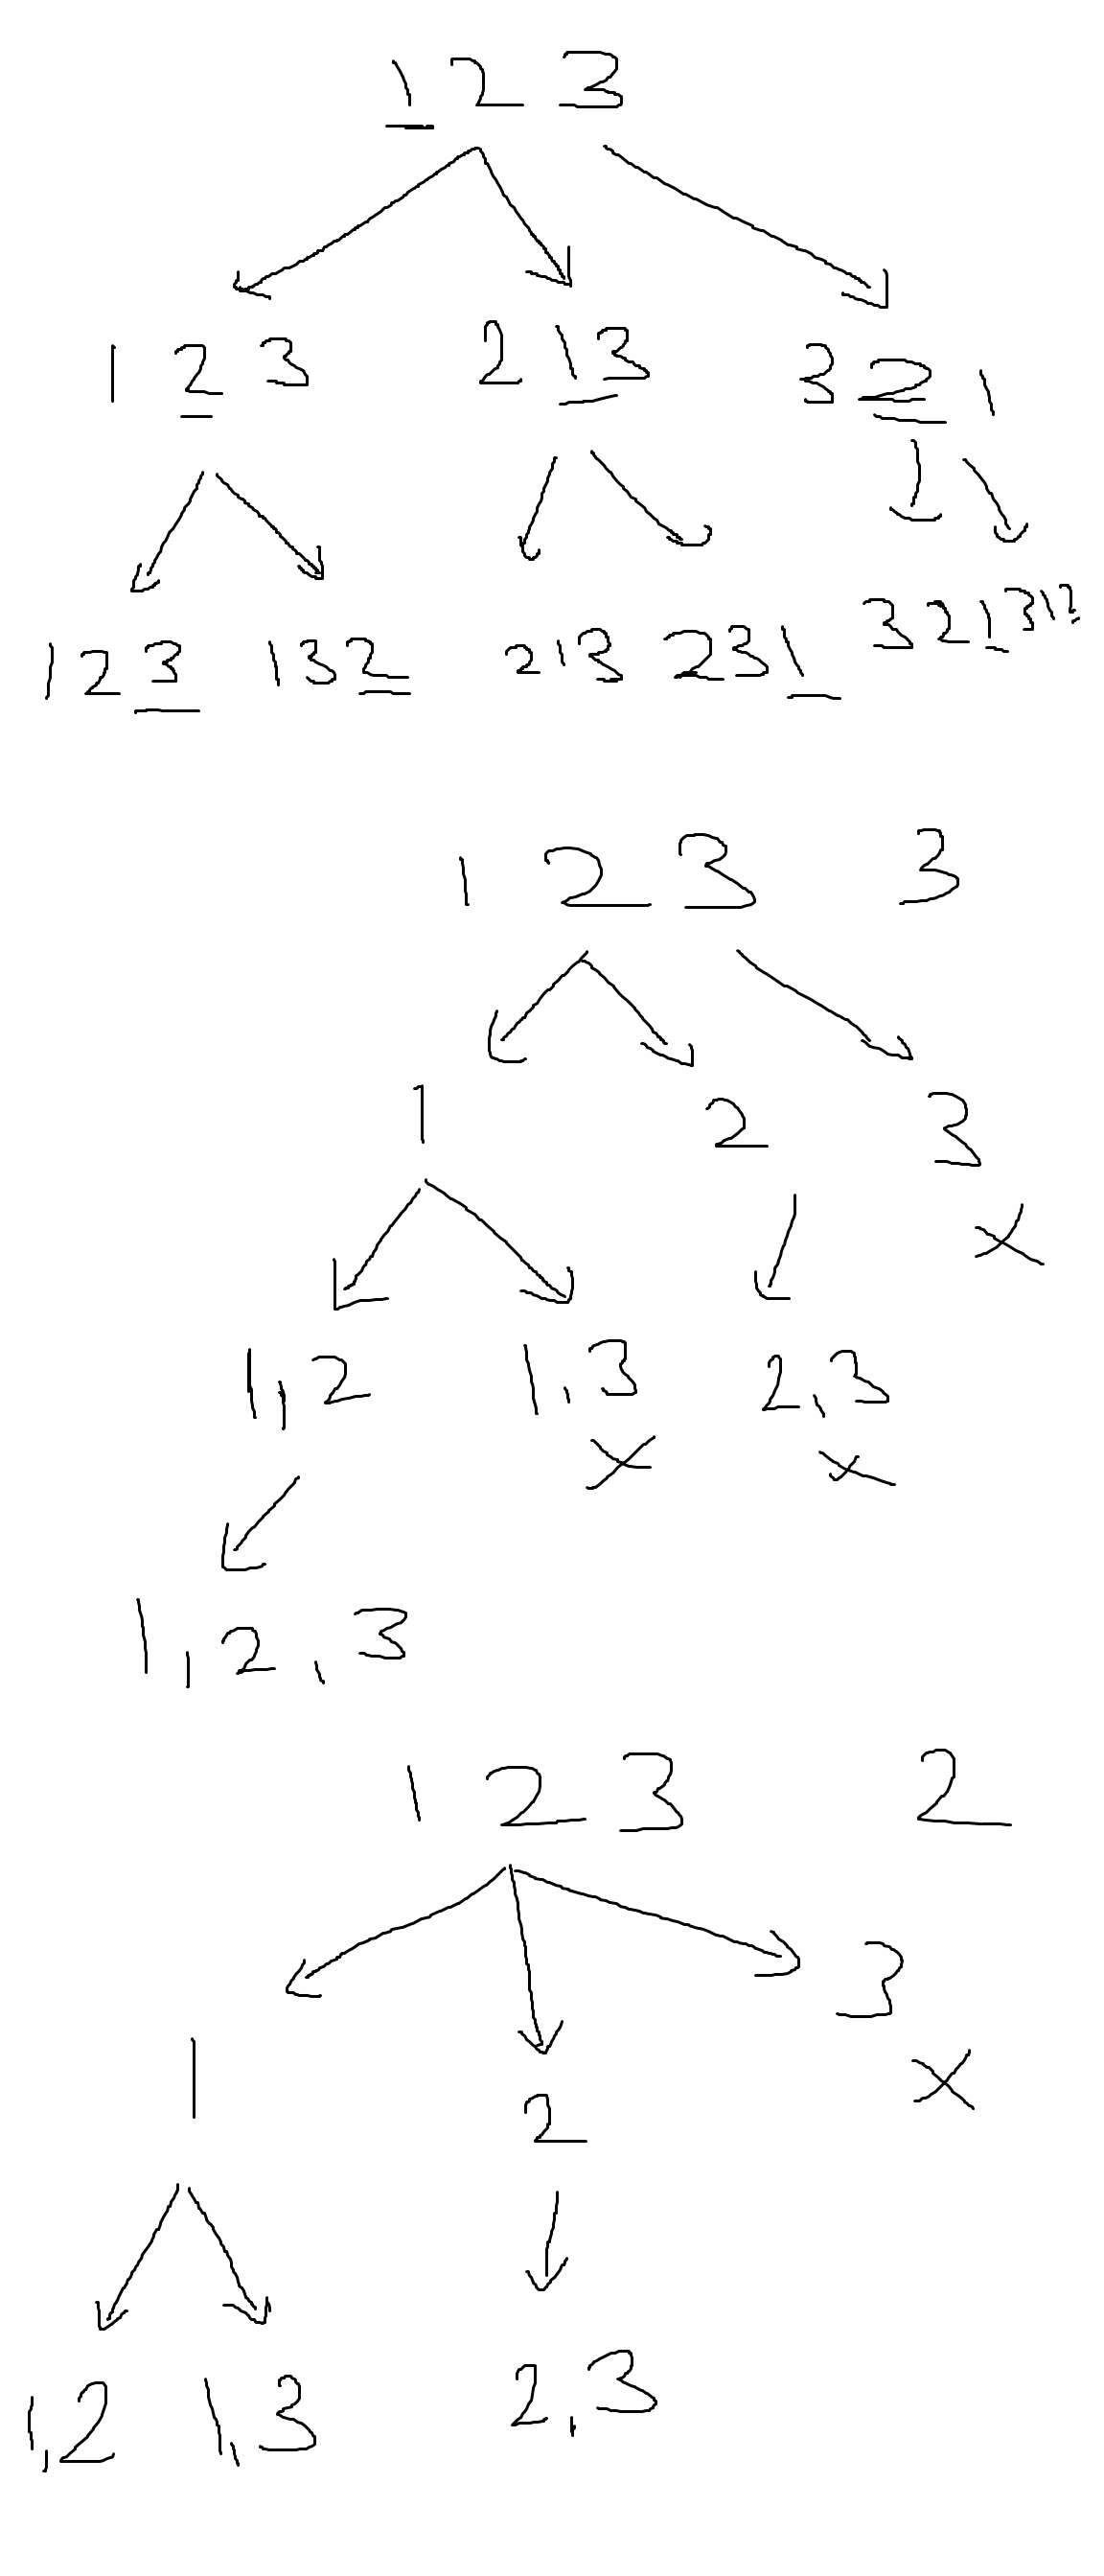 1 2 3
1 2 3 2 1 3 3 2 1
1 2 3 1 3 2 2 1 3 2 3 1 3 2 1 3 1 2
1 2 3 3
1 2 3
1,2 1,3 2,3
1,2,3
1 2 3 2
3
1
2
1,2 1,3 2,3